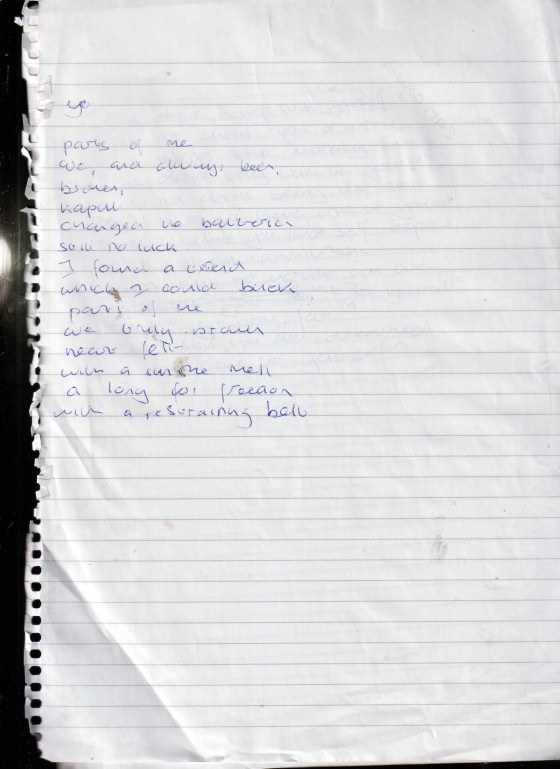 ye
parts of me
are, and always, been,
broken,
kaput
changed the batteries
still no luck
I found a
which I could
parts of me
are truly broken
never felt
with a
a long for freedom
with a restraining belt